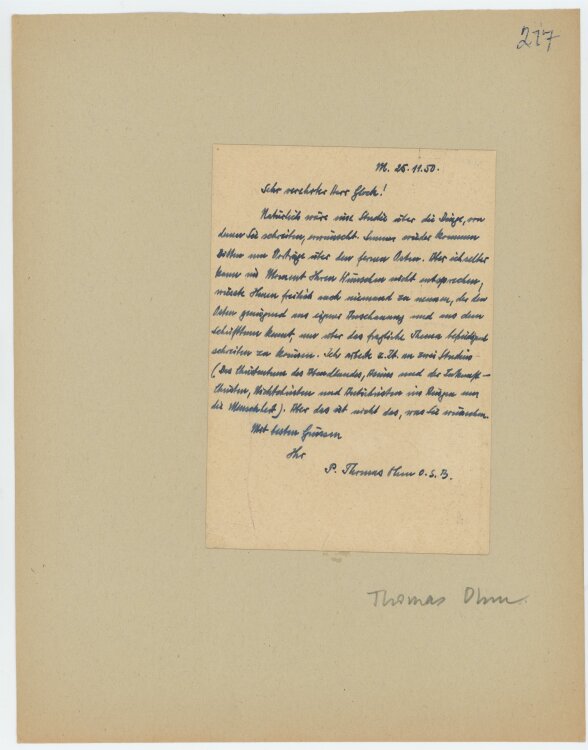 217
M. 26.11.50.
Sehr verehrter Herr Glock!
Natürlich wäre eine Studie über die Dinge, von
denen Sie schreiben, erwünscht. Immer wieder kommen
Bitten um Vorträge über den fernen Osten. Aber ich selber
kann im Moment Ihren Wünschen nicht entsprechen,
wüsste Ihnen freilich auch niemand zu nennen, der den
Osten genügend aus eigener Anschauung und aus dem
Schrifttum kennt, um über das fragliche Thema befriedigend
schreiben zu können. Ich arbeite z. Zt. an zwei Studien
(Das Christentum des Abendlandes, Asiens und der Zukunft –
Christen, Nichtchristen und Antichristen im Ringen um
die Menschheit). Aber das ist nicht das, was Sie wünschen.
Mit besten Grüssen
Ihr
P. Thomas Ohm O.S.B.
Thomas Ohm